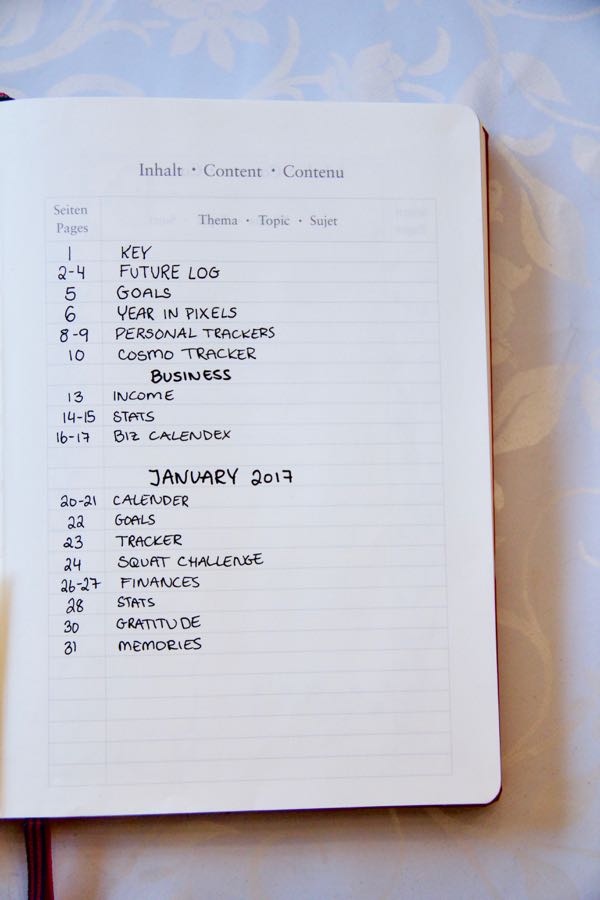 Inhalt · Content · Contenu
Seiten Pages Thema · Topic · Sujet
1 KEY
2-4 FUTURE LOG
5 GOALS
6 YEAR IN PIXELS
8-9 PERSONAL TRACKERS
10 COSMO TRACKER
BUSINESS
13 INCOME
14-15 STATS
16-17 BIZ CALENDEX
JANUARY 2017
20-21 CALENDER
22 GOALS
23 TRACKER
24 SQUAT CHALLENGE
26-27 FINANCES
28 STATS
30 GRATITUDE
31 MEMORIES